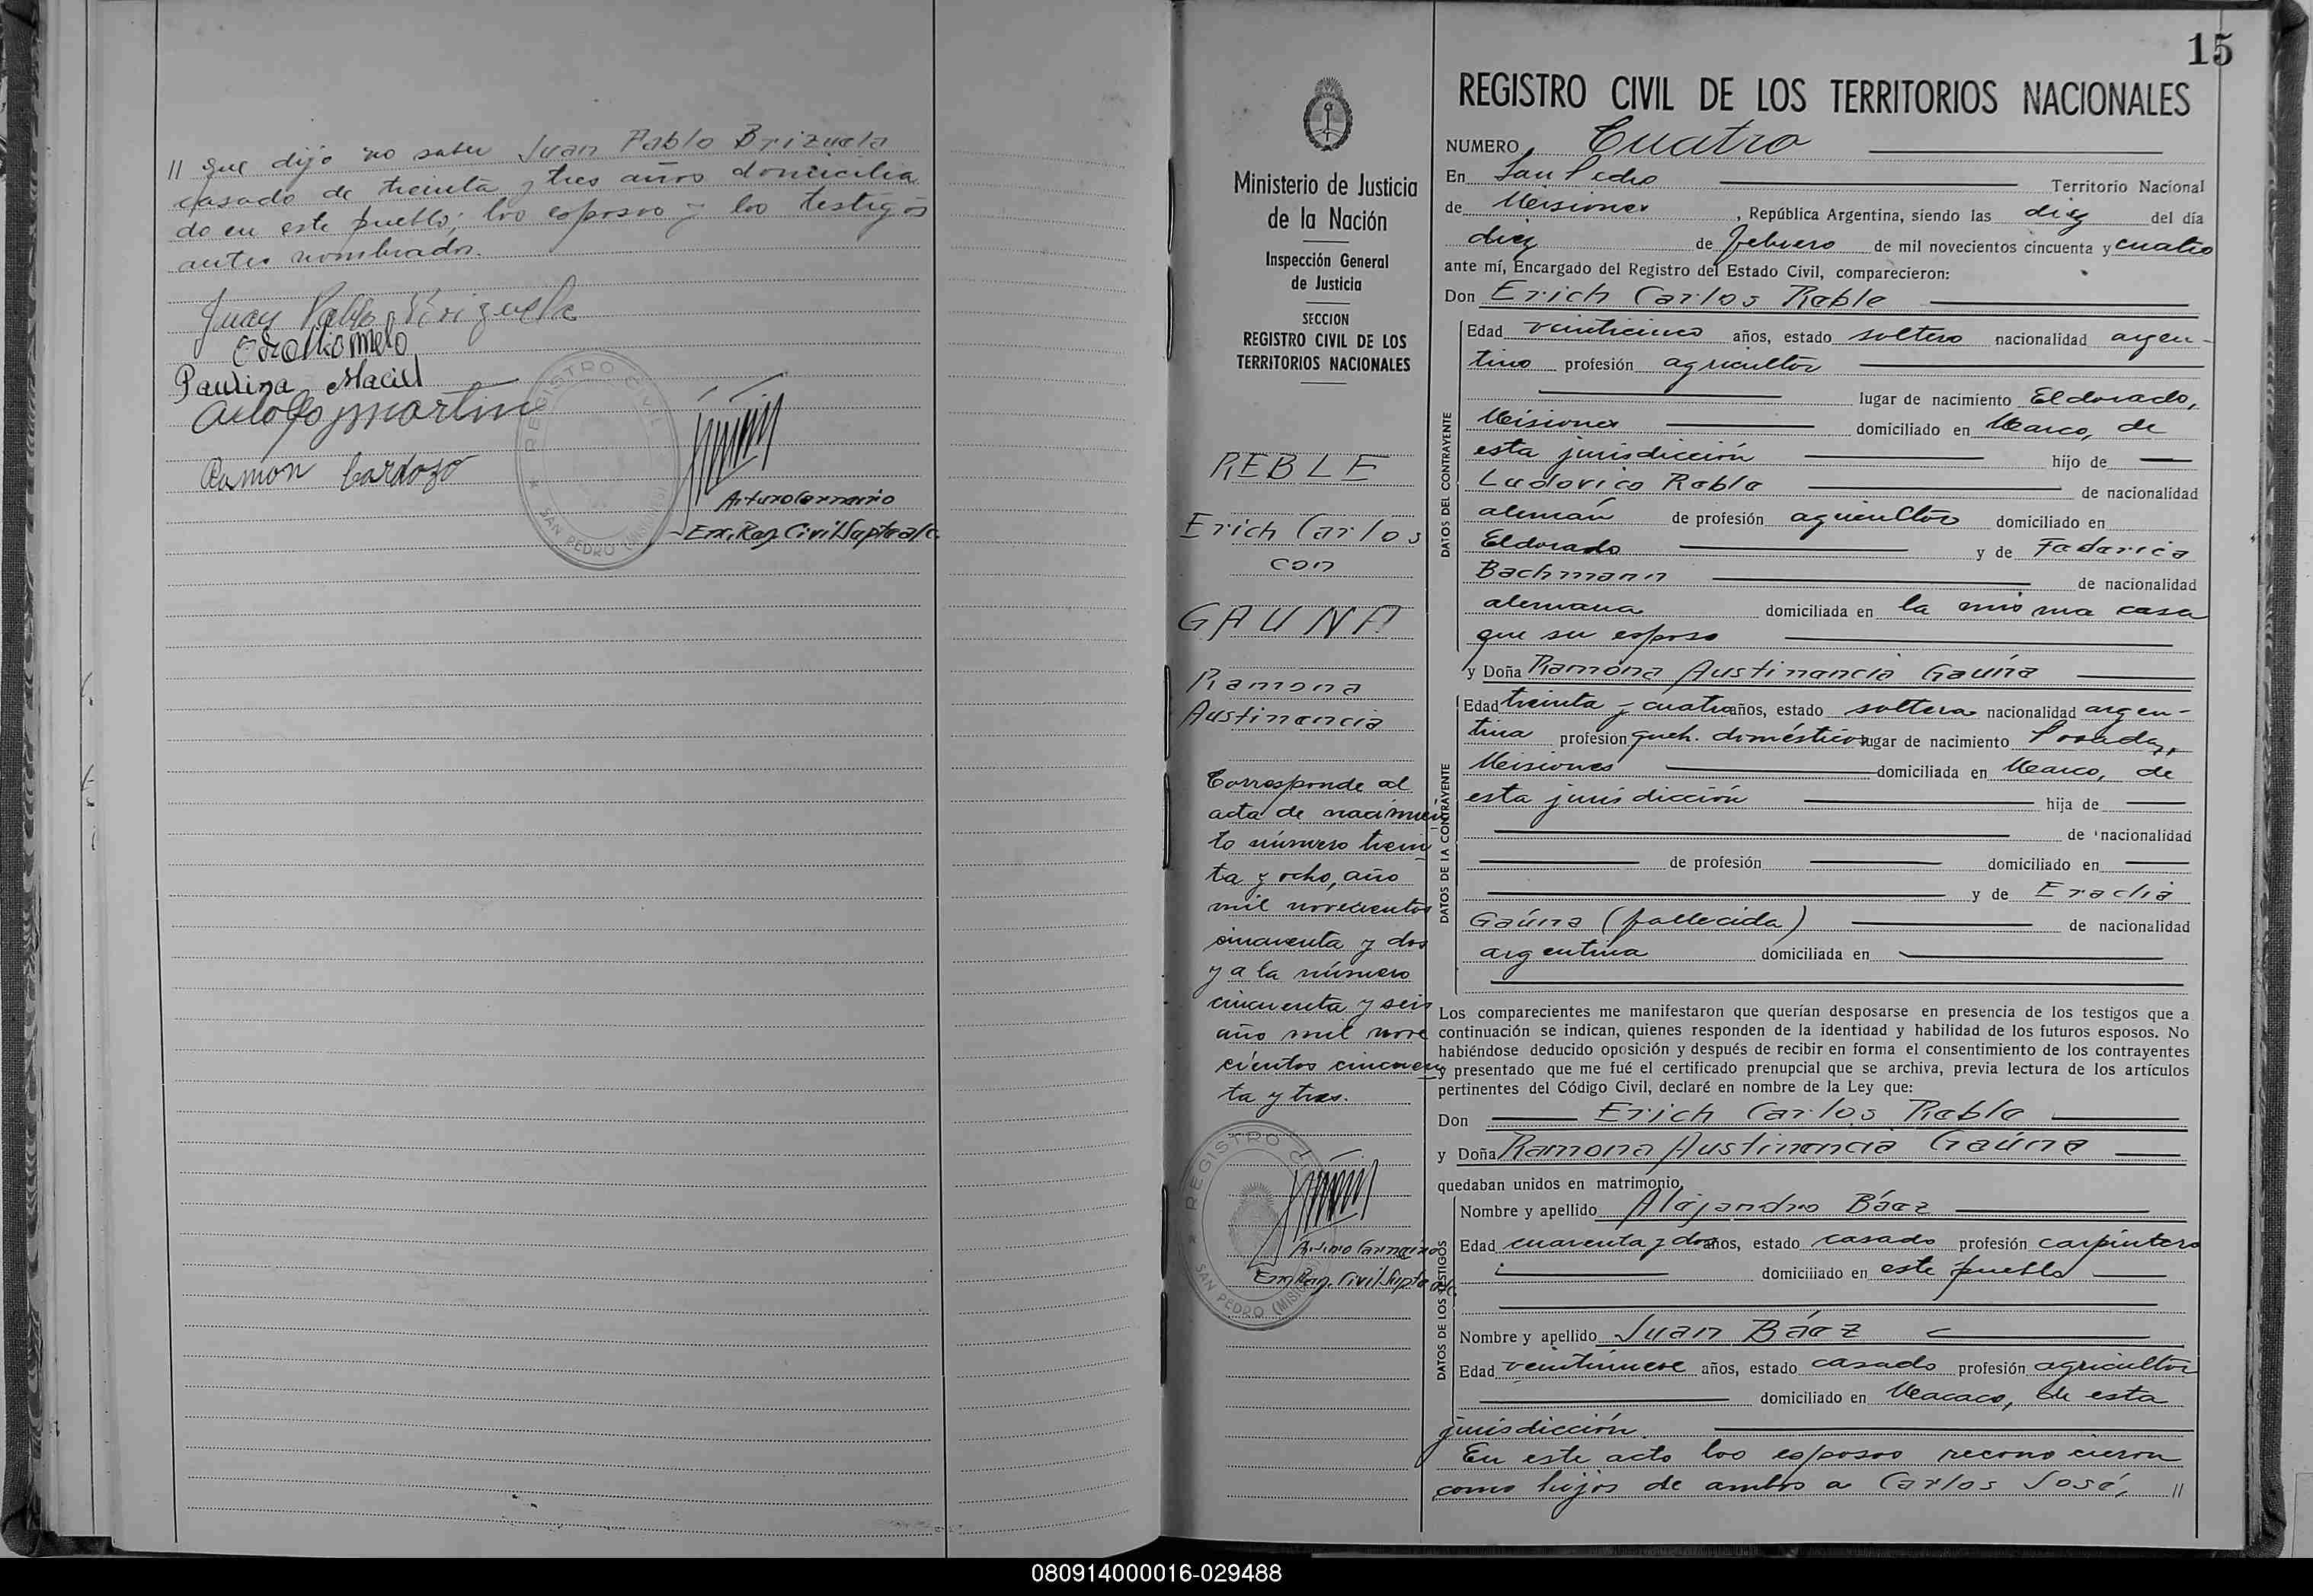 // que dijo no saber Juan Pablo Brizuela
casado de treinta y tres años domicilia
do en este pueblo; los esposos y los testigos
antes nombrados.
Juan Pablo Brizuela
Paulina Maciel
Adolfo J Martin
Ramon Cardozo
REGISTRO CIVIL
SAN PEDRO (MISIONES)
Enc. Reg. Civil Supte a/c.
15
REGISTRO CIVIL DE LOS TERRITORIOS NACIONALES
Ministerio de Justicia
de la Nación
Inspección General
de Justicia
SECCION
REGISTRO CIVIL DE LOS
TERRITORIOS NACIONALES
REBLE
Erich Carlos
con
GAUNA
Ramona
Austinencia
Corresponde al
acta de nacimien
to número trein
ta y ocho, año
mil novecientos
cincuenta y dos
y a la número
cincuenta y seis
año mil nove
cientos cincuen
ta y tres.
REGISTRO CIVIL
SAN PEDRO (MISIONES)
Enc. Reg. Civil Supte a/c.
NUMERO Cuatro
En San Pedro Territorio Nacional
de Misiones, República Argentina, siendo las diez del día
diez de febrero de mil novecientos cincuenta y cuatro
ante mí, Encargado del Registro del Estado Civil, comparecieron:
Don Erich Carlos Reble
DATOS DEL CONTRAYENTE
Edad veinticinco años, estado soltero nacionalidad argen-
tino profesión agricultor
lugar de nacimiento Eldorado,
Misiones domiciliado en de
esta jurisdicción hijo de
Ludovico Reble de nacionalidad
alemán de profesión agricultor domiciliado en
Eldorado y de Federica
Bachmann de nacionalidad
alemana domiciliada en la misma casa
que su esposo
y Doña Ramona Austinencia Gaúna
DATOS DE LA CONTRAYENTE
Edad treinta y cuatro años, estado soltera nacionalidad argen-
tina profesión queh. domésticos lugar de nacimiento Posadas,
Misiones domiciliada en de
esta jurisdicción hija de
de nacionalidad
de profesión domiciliado en
y de Eraclia
Gaúna (fallecida) de nacionalidad
argentina domiciliada en
Los comparecientes me manifestaron que querían desposarse en presencia de los testigos que a
continuación se indican, quienes responden de la identidad y habilidad de los futuros esposos. No
habiéndose deducido oposición y después de recibir en forma el consentimiento de los contrayentes
y presentado que me fué el certificado prenupcial que se archiva, previa lectura de los artículos
pertinentes del Código Civil, declaré en nombre de la Ley que:
Don Erich Carlos Reble
y Doña Ramona Austinencia Gaúna
quedaban unidos en matrimonio
DATOS DE LOS TESTIGOS
Nombre y apellido Alejandro Báez
Edad cuarenta y dos años, estado casado profesión carpintero
domiciliado en este pueblo
Nombre y apellido Juan Báez
Edad veintinueve años, estado casado profesión agricultor
domiciliado en de esta
jurisdicción.
En este acto los esposos reconocieron
como hijos de ambos a Carlos José, //
080914000016-029488